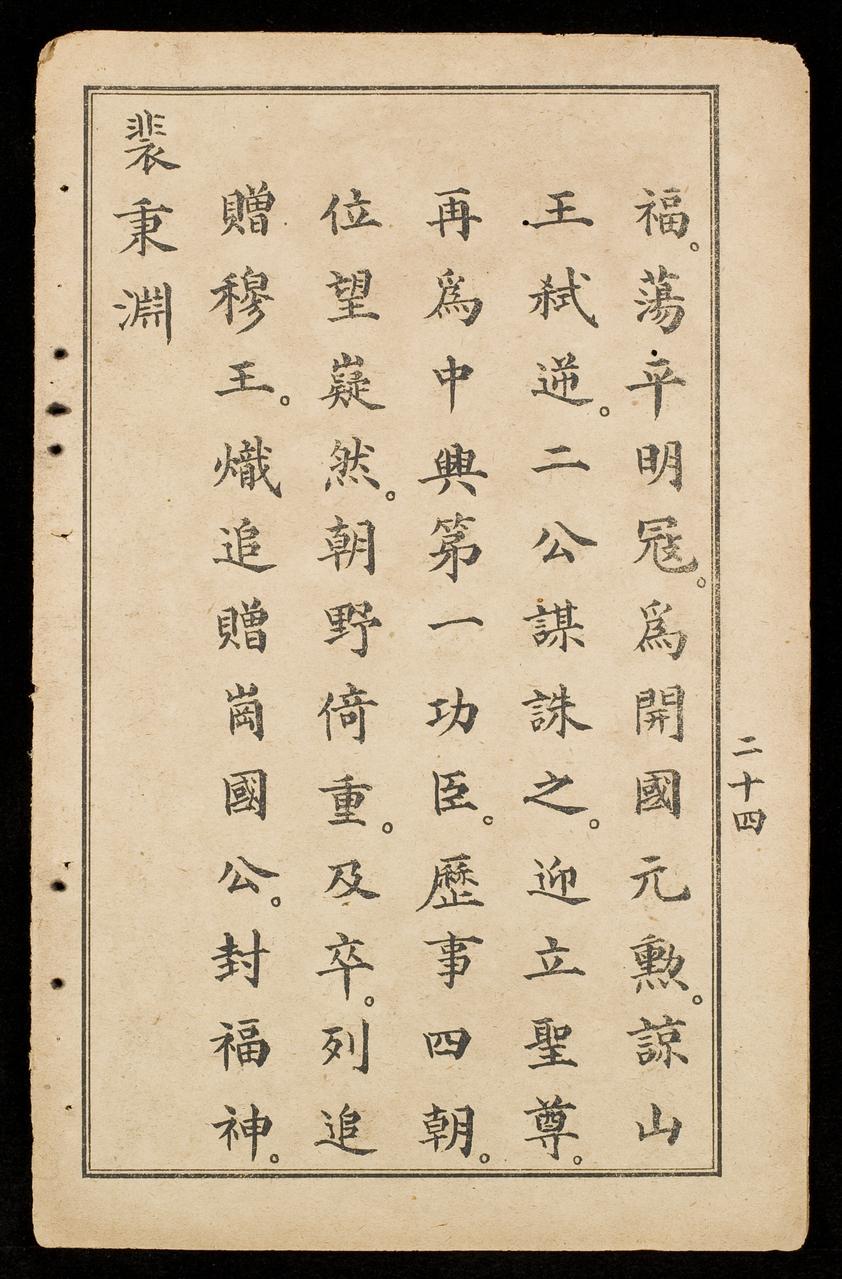 二十四
福。蕩平明寇。爲開國元勲。諒山
王弑逆。二公謀誅之。迎立聖尊。
再爲中興第一功臣。歷事四朝。
位望嶷然。朝野倚重。及卒。列追
贈穆王。熾追贈崗國公。封福神。
裴秉淵